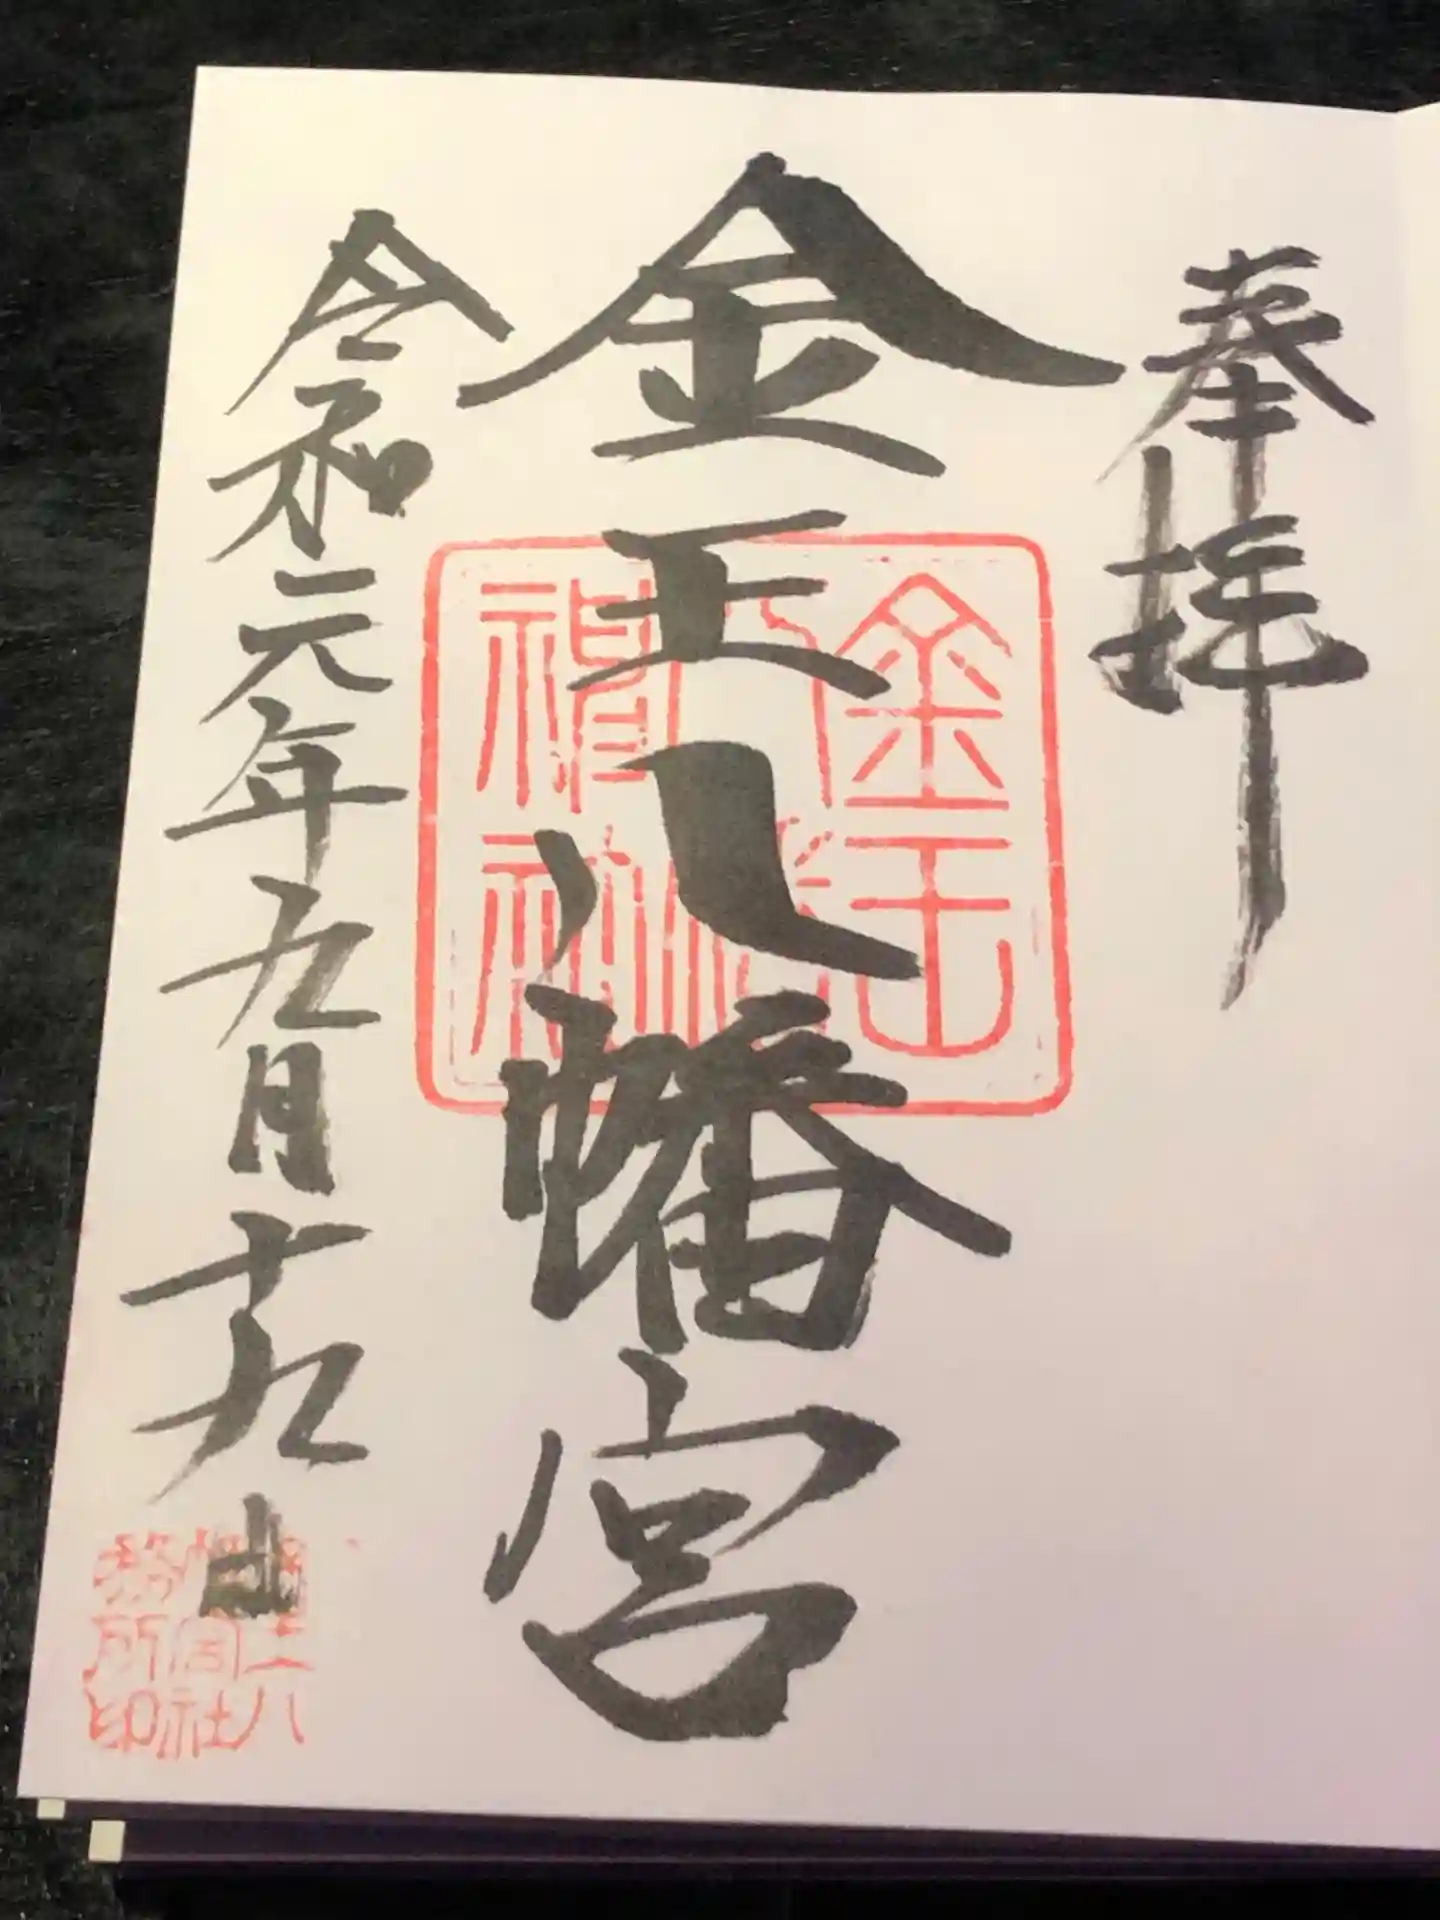 奉拝
金王八幡宮
令和元年九月十九日
金王八幡神社
金王八幡宮社務所印